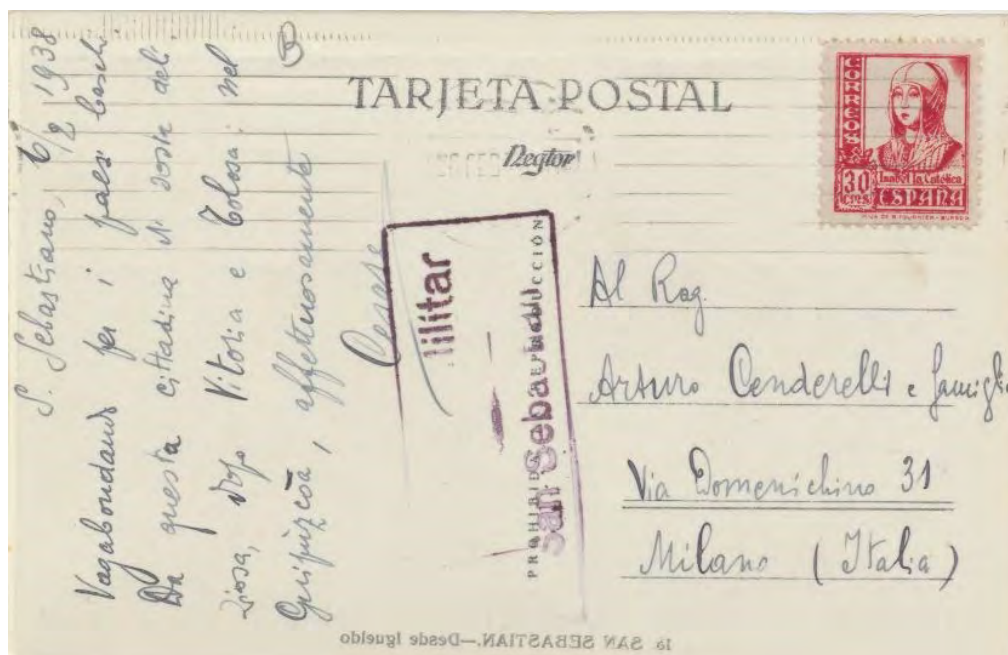 TARJETA POSTAL
Negtor
CORREOS
30 CTMS
Isabel la Católica
ESPAÑA
S. Sebastiano, 6/2 1938
Vagabondando per i paesi baschi
Da questa cittadina deli
ziosa, dopo Vitoria e Tolosa: nel
Guipùzcoa, affettuosamente
Cesare
ilitar
San Seba
PROHIBIDA REPRODUCCIÓN
Al Rag.
Arturo Cenderelli e famiglia
Via Domenichino 31
Milano (Italia)
SAN SEBASTIAN.—Desde Igueldo